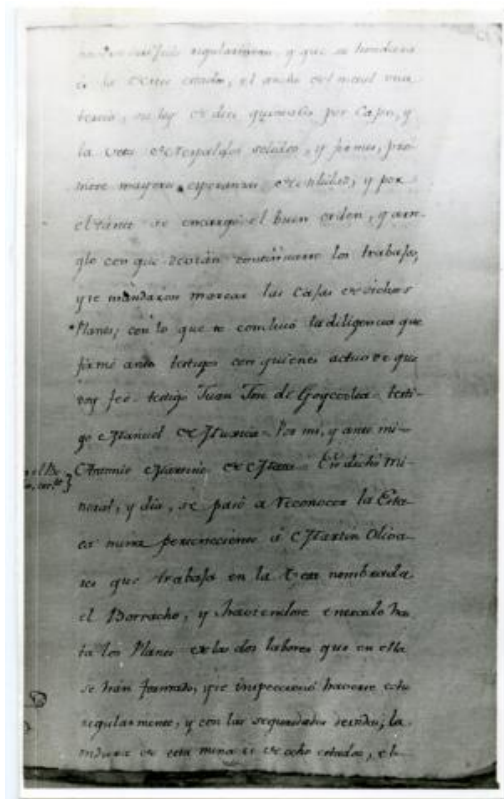 regularmente, y que se hondura
es de estados, el ancho del metal una
tercia, su ley de dies quintales por Cajon, y
la veta de respaldos solidos, y firmes, pro-
mete mayores esperanzas de utilidad; y por
el tanto se encargó el buen orden, y arre-
glo con que devian continuarse los trabajos,
y se mandaron marcar las Cajas de dichos
Planes; con lo que se concluió la diligencia que
firmé ante testigos con quienes actuo de que
doy feé. testigo Juan Jose de Goycoolea. testi-
go Manuel de Por mi, y ante mi-
Antonio de En dicho Mi-
neral, y dia, se pasó a reconocer la Esta-
ca mina perteneciente á Martin Oliva-
res que trabaja en la Veta nombrada
el Borracho; y haviendose entrado has-
ta los Planes de las dos labores que en ella
se hán formado, que inspeccionó hacerse
regularmente, y con las seguridades devidas; la
ondura de esta mina es de ocho estados, el